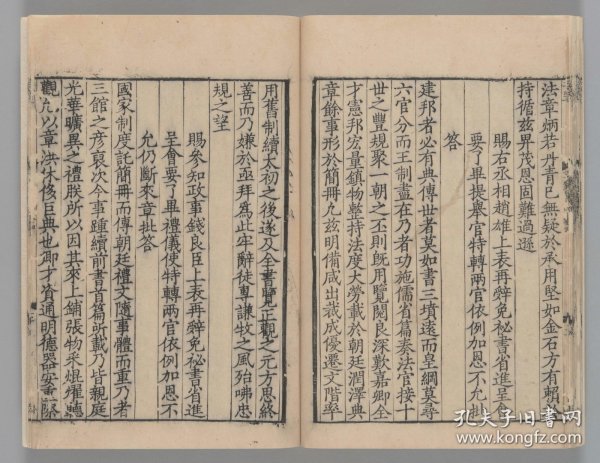 法章炳若丹青已無疑於承用堅如金石方有賴
持循茲畀茂恩固難過遜
賜右丞相趙雄上表再辭免祕書省進呈會
要了畢提舉官特轉兩官依例加恩不允批
答
建邦者必有典傳世者莫如書三墳遠而皇綱莫尋
六官分而王制盡在乃者功施儒省篇奏法官接十
世之豐規聚一朝之丕則旣用覽閱良深歎嘉卿全
才憲邦宏量鎮物整持法度大勞載於朝廷潤澤典
章餘事形於簡冊允茲明備咸出裁成優遷文階率
用舊制續太初之後遂及全書覽正觀之元方思終
善而乃嫌於亟拜爲此牢辭徒專謙牧之風殆咈忠
規之望
賜參知政事錢良臣上表再辭免祕書省進
呈會要了畢禮儀使特轉兩官依例加恩不
允仍斷來章批答
國家制度託簡冊而傳朝廷禮文隨事體而重乃者
三館之彥裒次今事踵續前書首篇所載乃皆親庭
光華曠異之禮朕所以因其來上鋪張物采焜燿聽
觀凡以章洪休侈巨典也卿才資通明德器安
孔夫子旧书网
www.kongfz.com